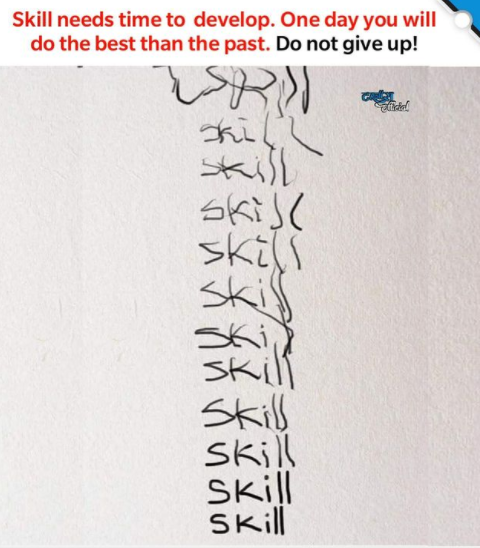 Skill needs time to develop. One day you will
do the best than the past. Do not give up!
Official
skill
skill
skill
skill
skill
skill
skill
skill
skill
skill
skill